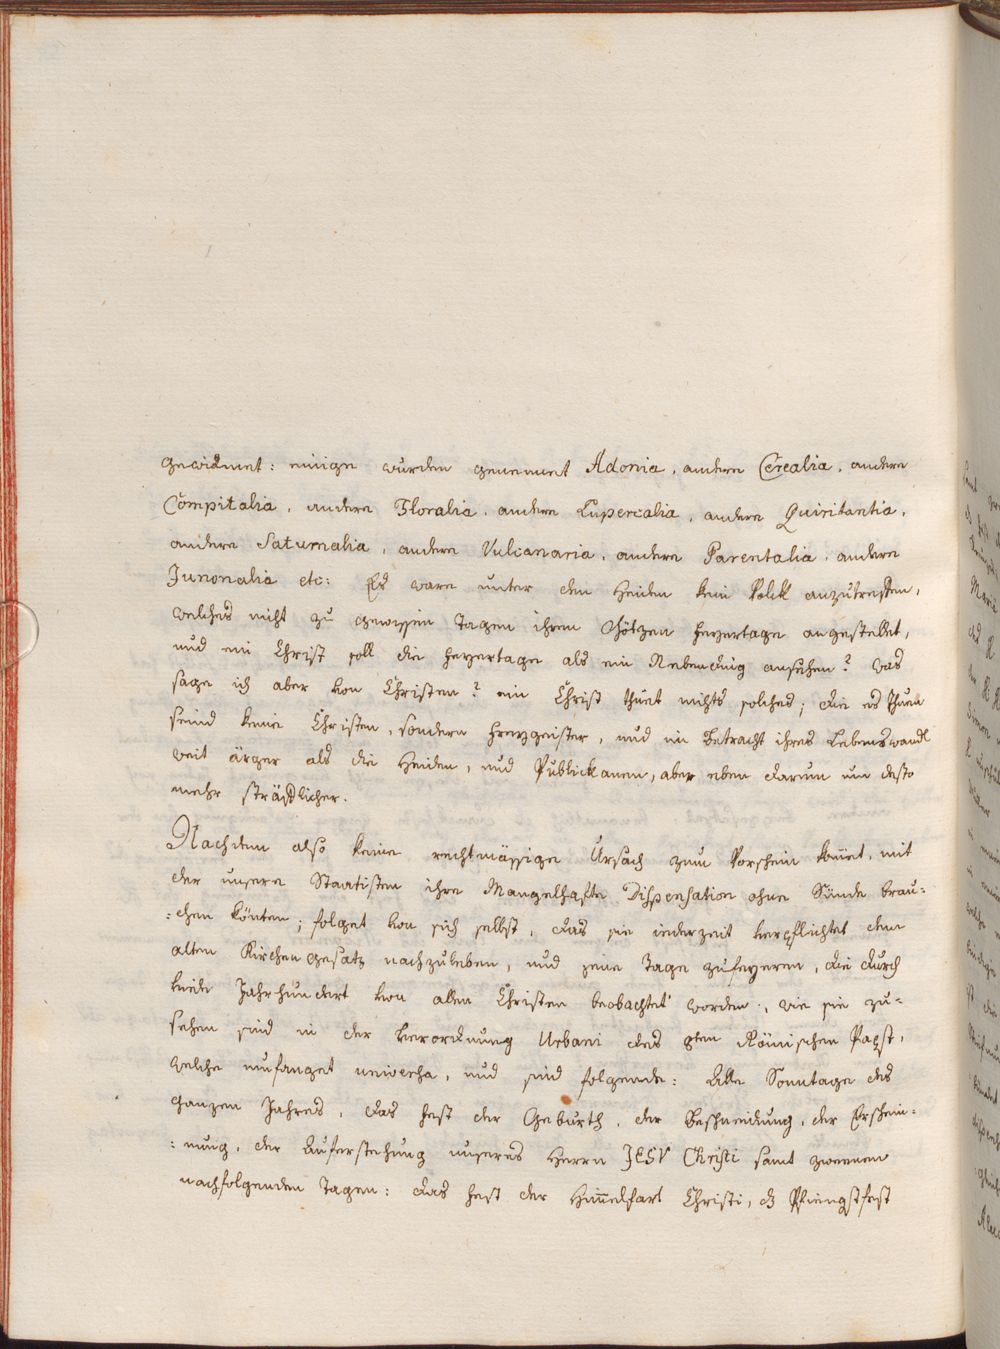 gewidmet: einige wurden genennet Adonia, andere Cerealia, andere
Compitalia, andere Floralia, andere Lupercalia, andere Quiritantia,
andere Saturnalia, andere Vulcanaria, andere Parentalia, andere
Junonalia etc: Es ware unter den Heiden kein Volck anzutreffen,
welches nicht zu gewissen Tagen ihren Götzen Feyertage angestellet,
und ein Christ soll die Feyertage als ein Nebending ansehen? was
sage ich aber von Christen? ein Christ thuet nichts solches; die es thuen
seind keine Christen, sondern Freygeister, und in Betracht ihres Lebenswandl
weit ärger als die Heiden, und Publickanen, aber eben darum um desto
mehr sträfflicher.
Nachdem also keine rechtmässige Ursach zum Vorschein kom̃et, mit
der unsere Staatisten ihre Mangelhafte Dispensation ohne Sünde brau-
:chen könten; folget von sich selbst, das sie iederzeit verpflichtet dem
alten Kirchengesatz nachzuleben, und jene Tage zufeyeren, die durch
viele Jahrhundert von allen Christen beobachtet worden, wie sie zu-
sehen sind in der Verordnung Urbani des 8ten Römischen Papst,
welche anfanget universa, und sind folgende: Alle Sonntage des
ganzen Jahres, das Fest der Geburth, der Beschneidung, der Erschein-
:nung, der Auferstehung unseres Herrn JESU Christi samt zweenen
nachfolgenden Tagen: das Fest der Him̃elfart Christi, dz Pfiengstfest